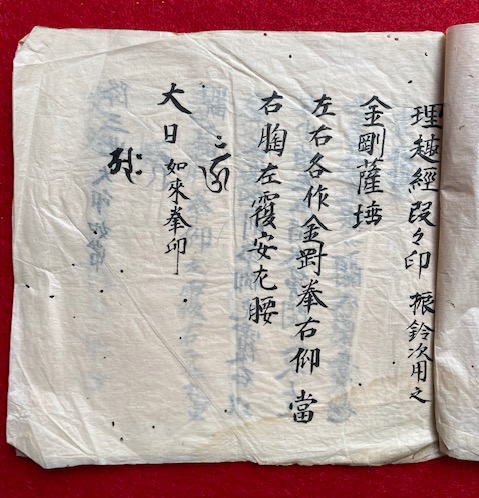 理趣經段々印 振鈴次用之
金剛薩埵
左右各作金剛拳右仰當
右胸左覆安左腰
大日 如來拳印